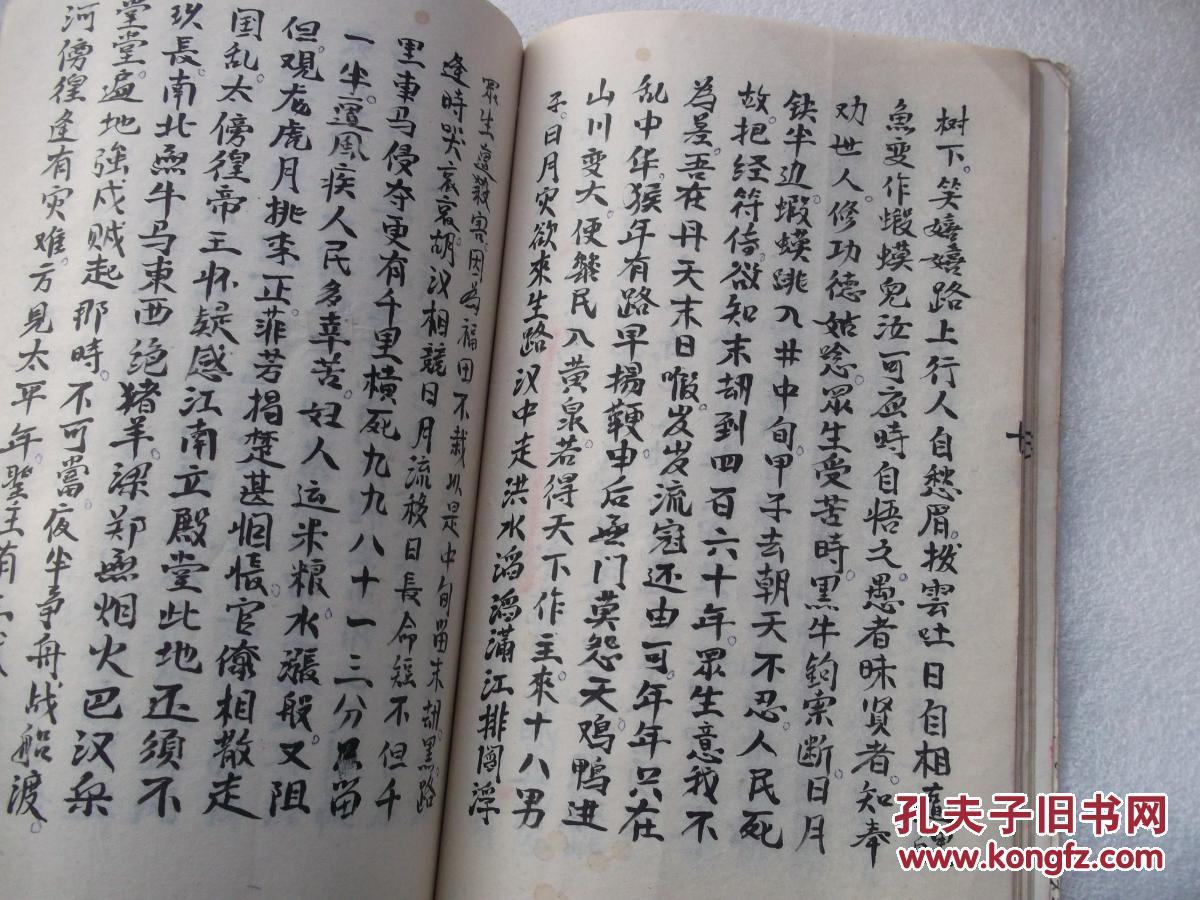 树下笑嬉嬉路上行人自愁眉拨雲吐日自相
魚变作蝦蟆兒汝可应時自悟之愚者昧贤者知奉
劝世人修功德姑唸眾生受苦時黑牛鉤索断日月
鉄半边蝦蟆跳入井中旬甲子去朝天不忍人民死
故把经符侍欲知末刼到四百六十年眾生意我不
為是吾在丹天末日嘅岁岁流冦还由可年年只在
乱中华猴年有路早揚鞭申后無门莫怨天鸡鸭进
山川变大便雞民入黄泉若得天下作主來十八男
子日月灾欲來生路汉中走洪水滔滔满江排阎浮
眾生遭殺害因為福田不栽以是中旬當末刼黑路
逢時哭哀哀胡汉相競日月流移日長命短不但千
里東马侵夺更有千里横死九九八十一三分只留
一半運風疾人民多辛苦妇人运米粮水漲般又阻
但观龙虎月挑李正菲芳揭楚甚悃悵官僚相散走
国乱太傍徨帝王怀疑感江南立殿堂此地还須不
玖長南北無牛马東西绝猪羊梁郑無烟火巴汉
堂堂遍地強戍贼起那時不可當夜半争舟战船渡
河傍徨逢有灾难方見太平年聖主有
十三
孔夫子旧书网
www.kongfz.com